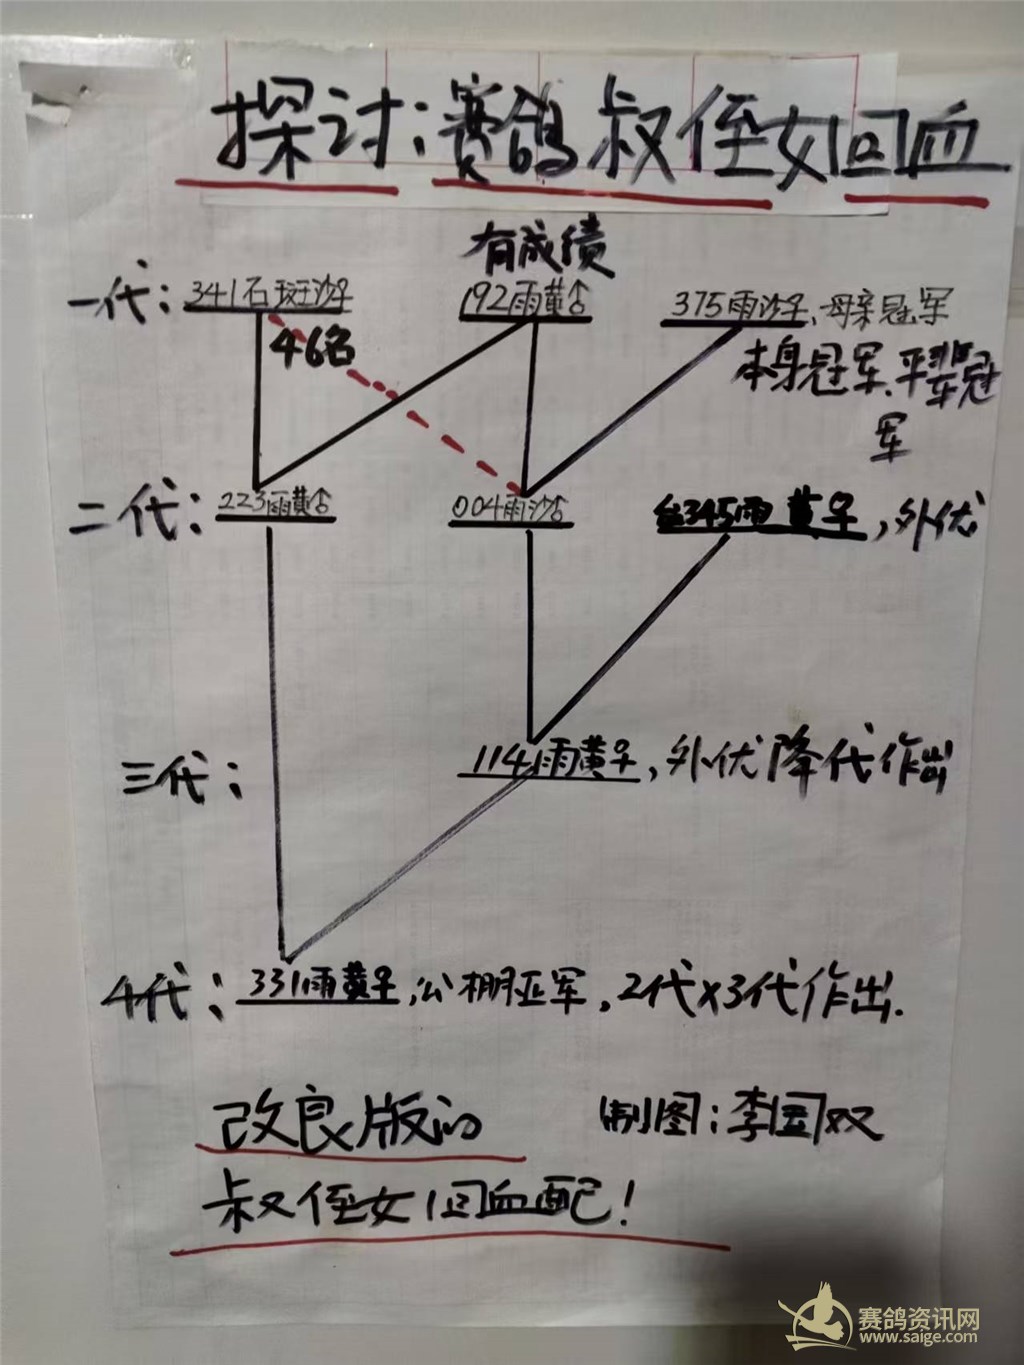 探讨：赛鸽叔侄女回血
有成绩
一代：341石斑沙♀ 192雨黄♂ 375雨沙♀、母亲冠军
46名
本身冠军、平辈冠
军
二代：223雨黄♂ 004雨沙♂ 台345雨黄♀，外优
三代：1141雨黄♀，外优降代作出
4代：331雨黄♀，公棚亚军，2代x3代作出.
改良版的 制图：李国双
叔侄女回血配！
赛鸽资讯网
www.saige.com